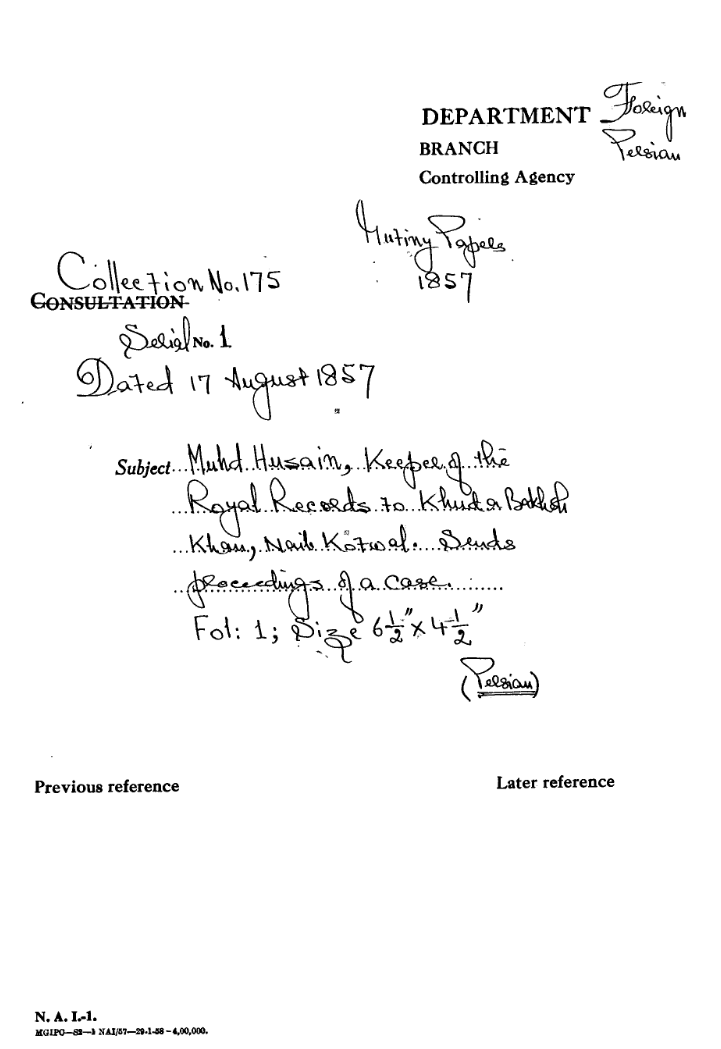 DEPARTMENT Foreign
BRANCH Persian
Controlling Agency
Mutiny Papers
1857
Collection No. 175
CONSULTATION
Serial No. 1
Dated 17 August 1857
Subject Muhd. Husain, Keeper of the
Royal Records to Khuda Bakhsh
Khan, Naib Kotwal. Sends
proceedings of a case.
Fol: 1; Size 6 1/2" x 4 1/2"
(Persian)
Previous reference Later reference
N. A. I.-1.
MGIPC—S2—1 NAI/57—29-1-58—4,00,000.